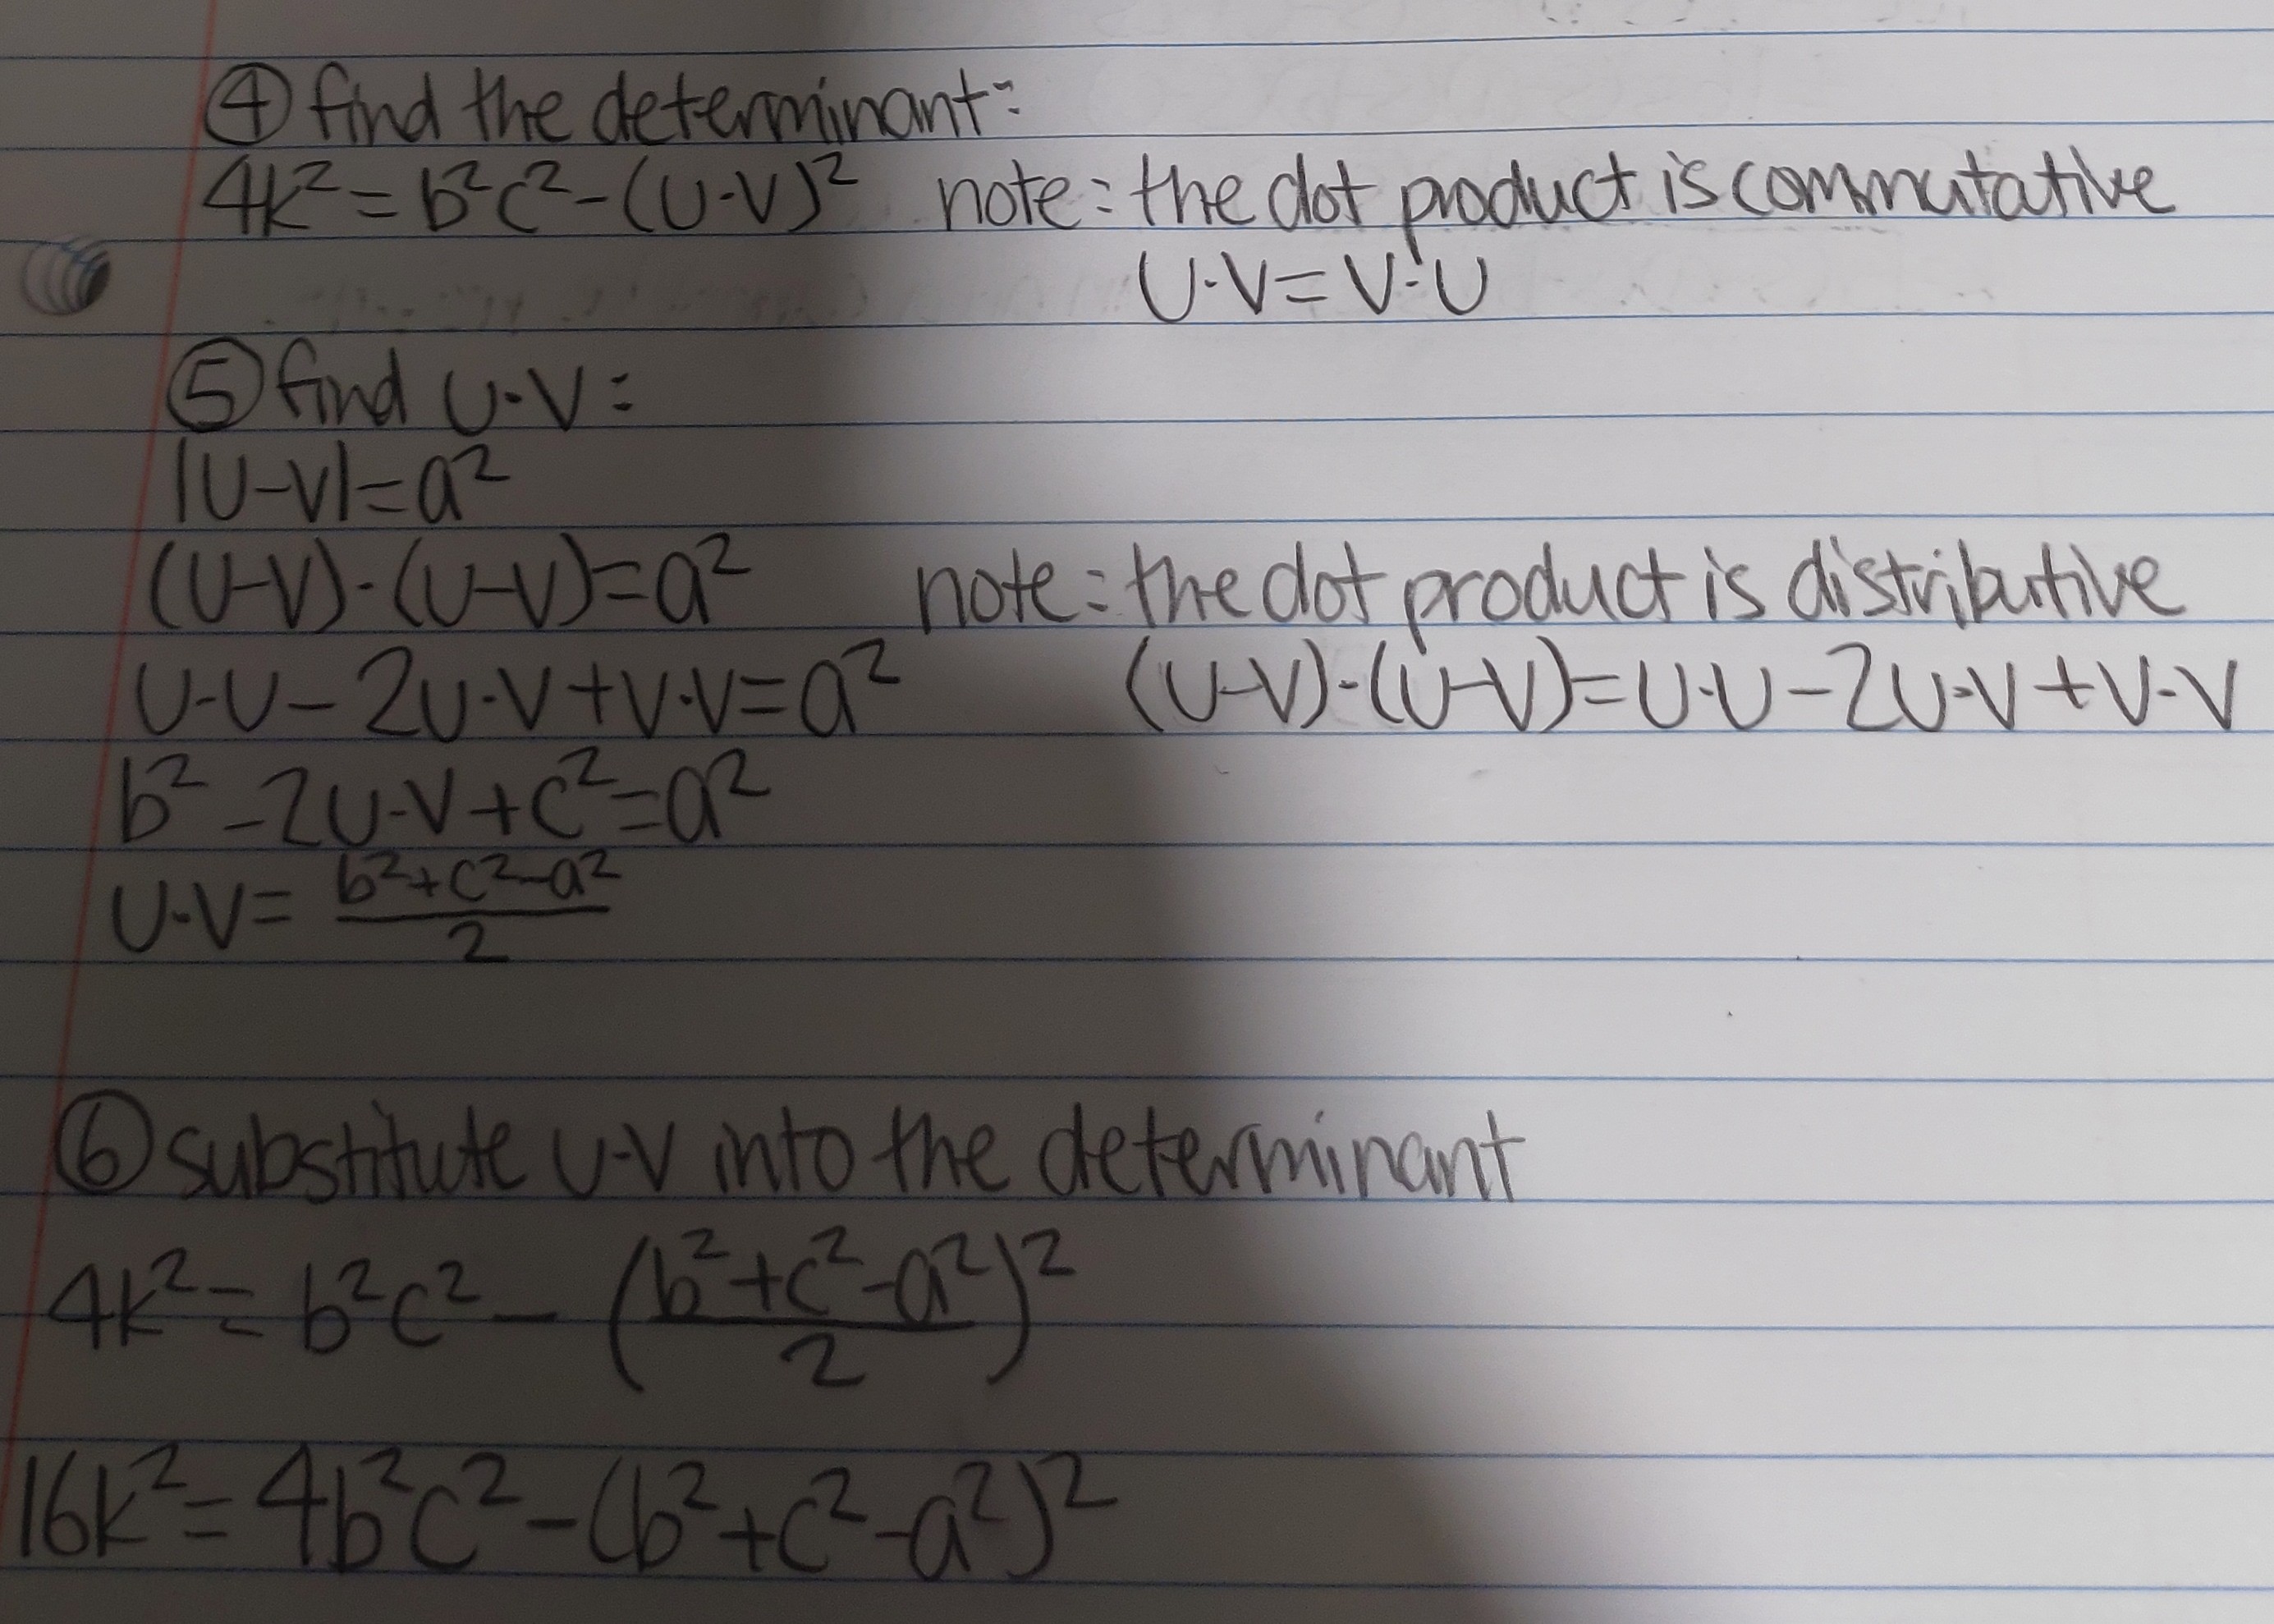 ④ find the determinant:
4k² = b²c² - (U·V)² note: the dot product is commutative
U·V = V·U
⑤ find U·V:
|U-V| = a²
(U-V)·(U-V) = a² note: the dot product is distributive
U·U - 2U·V + V·V = a² (U-V)·(U-V) = U·U - 2U·V + V·V
b² - 2U·V + c² = a²
U·V = (b²+c²-a²)/2
⑥ substitute U·V into the determinant
4k² = b²c² - ((b²+c²-a²)/2)²
16k² = 4b²c² - (b²+c²-a²)²